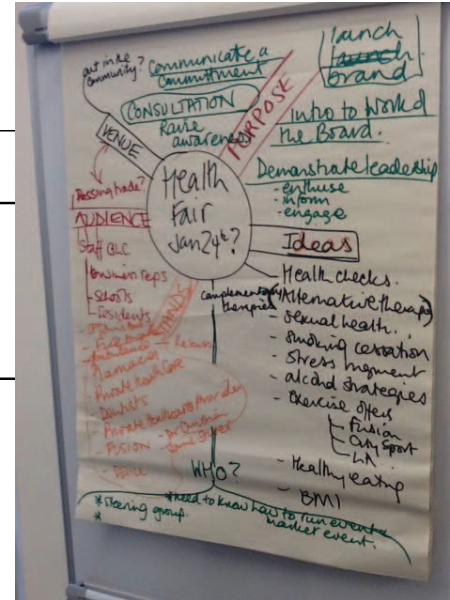 out in the
community?
Communicate a
commitment
CONSULTATION
Raise
awareness
PURPOSE
launch
launch
brand
Intro to World
the Board.
Demonstrate leadership
- enthuse
- inform
- engage
VENUE
Passing trade?
AUDIENCE
Staff
Business reps
Schools
Residents
Health
Fair
Jan 24th?
Ideas
- Health checks.
complementary
therapies
(Alternative therapies)
- Sexual health.
- Smoking cessation
- Stress mgment
- alcohol strategies
- Exercise offers
- Fusion
- City Sport
- LA
- Healthy eating
- BMI
STANDS
Pharmacies
Private Health Care
Dentists
Private Healthcare Provider
- FUSION
- Police
WHO?
* Steering group.
* need to know how to run event &
market event.
*